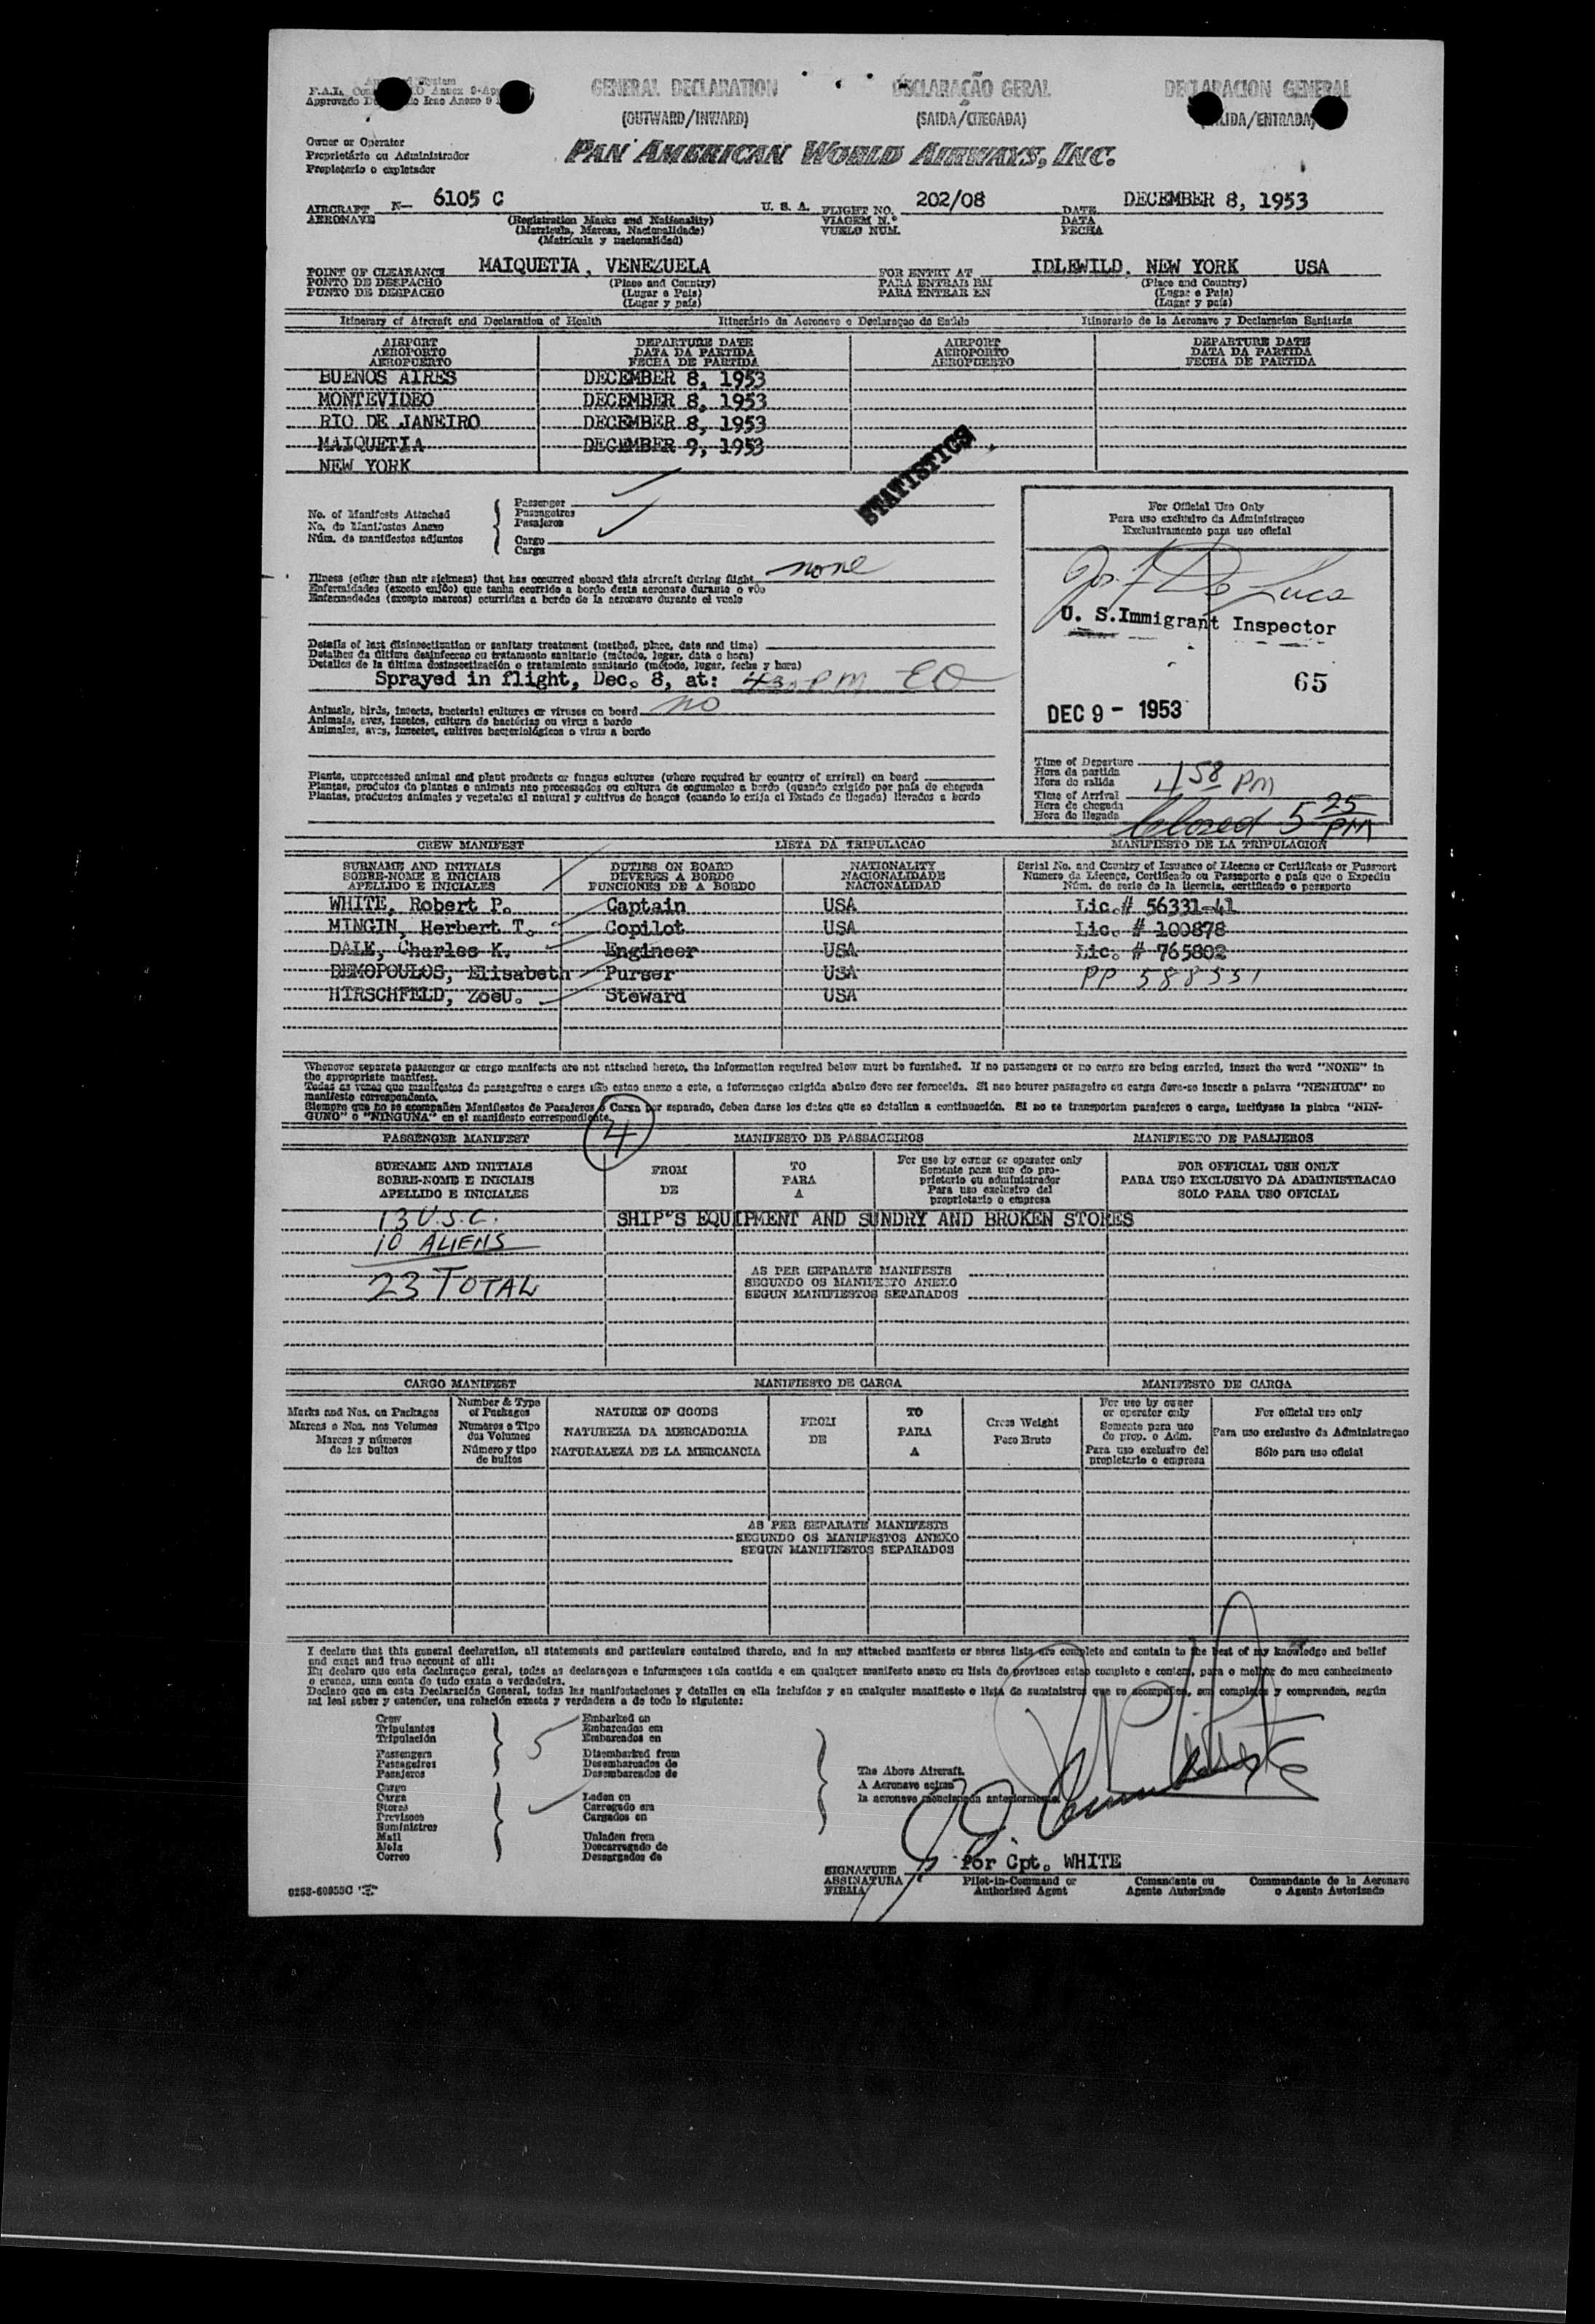 GENERAL DECLARATION
(OUTWARD/INWARD)
DECLARAÇÃO GERAL
(SAIDA/CHEGADA)
DECLARACION GENERAL
Owner or Operator
Proprietário ou Administrador
Propietario o explotador
PAN AMERICAN WORLD AIRWAYS, INC.
AIRCRAFT N— 6105 C U. S. A. FLIGHT NO. 202/08 DATE DECEMBER 8, 1953
AERONAVE (Registration Marks and Nationality) VIAGEM N.º DATA
(Matricula, Marcas, Nacionalidade) VUELO NUM. FECHA
(Matricula y nacionalidad)
POINT OF CLEARANCE MAIQUETIA, VENEZUELA FOR ENTRY AT IDLEWILD, NEW YORK USA
PONTO DE DESPACHO (Place and Country) PARA ENTRAR EM (Place and Country)
PUNTO DE DESPACHO (Lugar e Pais) PARA ENTRAR EN (Lugar e Pais)
(Lugar y país) (Lugar y país)
Itinerary of Aircraft and Declaration of Health Itinerário da Aeronave e Declaraçao de Saúde Itinerario de la Aeronave y Declaracion Sanitaria
AIRPORT DEPARTURE DATE AIRPORT DEPARTURE DATE
AEROPORTO DATA DA PARTIDA AEROPORTO DATA DA PARTIDA
AEROPUERTO FECHA DE PARTIDA AEROPUERTO FECHA DE PARTIDA
BUENOS AIRES DECEMBER 8, 1953
MONTEVIDEO DECEMBER 8, 1953
RIO DE JANEIRO DECEMBER 8, 1953
MAIQUETIA DECEMBER 9, 1953
NEW YORK
STATISTICS
No. of Manifests Attached
No. de Manifestos Anexo
Núm. de manifiestos adjuntos
Passenger
Passageiros
Pasajeros
Cargo
Carga
Illness (other than air sickness) that has occurred aboard this aircraft during flight none
Enfermidades (exceto enjôo) que tenha ocorrido a bordo desta aeronave durante o vôo
Enfermedades (excepto mareos) ocurridas a bordo de la aeronave durante el vuelo
Details of last disinsectization or sanitary treatment (method, place, date and time)
Detalhes da última desinfeccao ou tratamento sanitario (método, lugar, data e hora)
Detalles de la última desinsectización o tratamiento sanitario (método, lugar, fecha y hora)
Sprayed in flight, Dec. 8, at:
Animals, birds, insects, bacterial cultures or viruses on board no
Animais, aves, insetos, cultura de bactérias ou virus a bordo
Animales, aves, insectos, cultivos bacteriológicos o virus a bordo
Plants, unprocessed animal and plant products or fungus cultures (where required by country of arrival) on board
Plantas, produtos de plantas e animais nao processados ou cultura de cogumelos a bordo (quando exigido por país de chegada
Plantas, productos animales y vegetales al natural y cultivos de hongos (cuando lo exija el Estado de llegada) llevados a bordo
For Official Use Only
Para uso exclusivo da Administraçao
Exclusivamente para uso oficial
U. S. Immigrant Inspector
65
DEC 9 - 1953
Time of Departure
Hora da partida
Hora de salida
Time of Arrival 4 58 PM
Hora de chegada
Hora de llegada Closed 5 25 PM
CREW MANIFEST LISTA DA TRIPULACAO MANIFIESTO DE LA TRIPULACION
SURNAME AND INITIALS DUTIES ON BOARD NATIONALITY Serial No. and Country of Issuance of License or Certificate or Passport
SOBRE-NOME E INICIAIS DEVERES A BORDO NACIONALIDADE Numero da Licença, Certificado ou Passaporte e país que o Expediu
APELLIDO E INICIALES FUNCIONES DE A BORDO NACIONALIDAD Núm. de serie de la licencia, certificado o pasaporte
WHITE, Robert P. Captain USA Lic.# 56331-41
MINGIN, Herbert T. Copilot USA Lic. # 100878
DALE, Charles K. Engineer USA Lic. # 765802
DEMOPOULOS, Elisabeth Purser USA PP 588551
HIRSCHFELD, ZoeU. Steward USA
Whenever separate passenger or cargo manifests are not attached hereto, the information required below must be furnished. If no passengers or no cargo are being carried, insert the word "NONE" in
the appropriate manifest.
Todas as vezes que manifestos de passageiros e carga não estao anexo a este, a informaçao exigida abaixo deve ser fornecida. Si nao houver passageiro ou carga deve-se inserir a palavra "NENHUM" no
manifesto correspondente.
Siempre que no se acompañen Manifiestos de Pasajeros o Carga por separado, deben darse los datos que se detallan a continuación. Si no se transporten pasajeros o carga, inclúyase la plabra "NIN-
GUNO" o "NINGUNA" en el manifiesto correspondiente.
4
PASSENGER MANIFEST MANIFESTO DE PASSAGEIROS MANIFIESTO DE PASAJEROS
SURNAME AND INITIALS
SOBRE-NOME E INICIAIS
APELLIDO E INICIALES
FROM
DE
TO
PARA
A
For use by owner or operator only
Somente para uso do pro-
prietario ou administrador
Para uso exclusivo del
propietario o empresa
FOR OFFICIAL USE ONLY
PARA USO EXCLUSIVO DA ADMINISTRACAO
SOLO PARA USO OFICIAL
13 U.S.C. SHIP'S EQUIPMENT AND SUNDRY AND BROKEN STORES
10 ALIENS
23 TOTAL
AS PER SEPARATE MANIFESTS
SEGUNDO OS MANIFESTO ANEXO
SEGUN MANIFIESTOS SEPARADOS
CARGO MANIFEST MANIFIESTO DE CARGA MANIFESTO DE CARGA
Marks and Nos. on Packages
Marcas e Nos. nos Volumes
Marcas y números
de los bultos
Number & Type
of Packages
Numeros e Tipo
dos Volumes
Número y tipo
de bultos
NATURE OF GOODS
NATUREZA DA MERCADORIA
NATURALEZA DE LA MERCANCIA
FROM
DE
TO
PARA
A
Gross Weight
Peso Bruto
For use by owner
or operator only
Somente para uso
do prop. o Adm.
Para uso exclusivo del
propietario o empresa
For official use only
Para uso exclusivo da Administraçao
Sólo para uso oficial
AS PER SEPARATE MANIFESTS
SEGUNDO OS MANIFESTOS ANEXO
SEGUN MANIFIESTOS SEPARADOS
I declare that this general declaration, all statements and particulars contained therein, and in any attached manifests or stores lists are complete and contain to the best of my knowledge and belief
and exact and true account of all:
Eu declaro que esta declaraçao geral, todas as declaraçoes e informaçoes nela contida e em qualquer manifesto anexo ou lista de provisoes estao completo e contem, para o melhor do meu conhecimento
e crenca, uma conta de tudo exata e verdadeira.
Declaro que en esta Declaración General, todas las manifestaciones y detalles en ella incluídos y en cualquier manifiesto o lista de suministros que se acompañen, son completos y comprenden, según
mi leal saber y entender, una relación exacta y verdadera a de todo lo siguiente:
Crew
Tripulantes
Tripulación
Passengers
Passageiros
Pasajeros
Cargo
Carga
Stores
Previsoes
Suministros
Mail
Mala
Correo
5
Embarked on
Embarcados em
Embarcados en
Disembarked from
Desembarcados de
Desembarcados de
Laden on
Carregado em
Cargados en
Unladen from
Descarregado de
Descargados de
The Above Aircraft.
A Aeronave acima
la aeronave mencionada anteriormente.
for Cpt. WHITE
SIGNATURE
ASSINATURA
FIRMA
Pilot-in-Command or
Authorized Agent
Comandante ou
Agente Autorizado
Commandante de la Aeronave
o Agente Autorizado